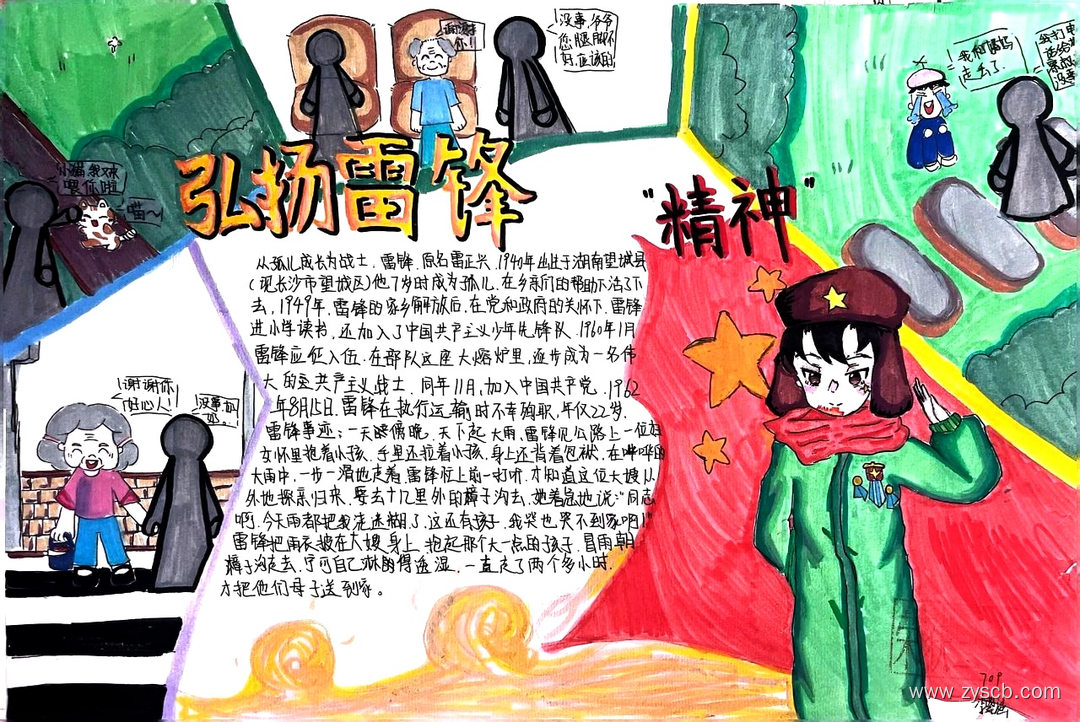 谢谢你!!
没事,爷爷
您腿脚不
好,应该的
我和妈妈
走丢了.
给打电
话给
没事
小猫,我又来
喂你啦
喵~
弘扬雷锋
"精神"
从孤儿成长为战士,雷锋,原名雷正兴,1940年出生于湖南望城县
(现长沙市望城区)他7岁时成为孤儿,在乡亲们的帮助下活了下
去,1949年,雷锋的家乡解放后,在党和政府的关怀下,雷锋
进小学读书,还加入了中国共产主义少年先锋队,1960年1月
雷锋应征入伍,在部队这座大熔炉里,逐步成为一名伟
大的共产主义战士,同年11月,加入中国共产党,1962
年8月15日,雷锋在执行运输时不幸殉职,年仅22岁.
雷锋事迹:一天傍晚,天下起大雨,雷锋见公路上一位妇
女怀里抱着小孩,手里还拉着小孩,身上还背着包袱,在哗哗的
大雨中一步一滑地走着,雷锋忙上前一打听,才知道这位大嫂从
外地探亲归来,要去十几里外的樟子沟去,她着急地说:"同志
啊,今天雨都把我走迷糊了,这还有孩子,我哭也哭不到家啊!"
雷锋把雨衣披在大嫂身上,抱起那个大一点的孩子,冒雨朝
樟子沟走去,宁可自己淋的得透湿,一直走了两个多小时,
才把他们母子送到家。
谢谢你
好心人!
没事奶
奶.
709
www.zyscb.com